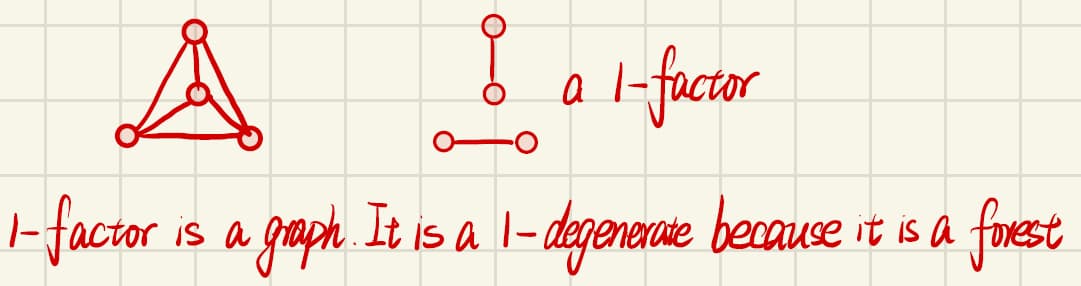 a 1-factor
1-factor is a graph. It is a 1-degenerate because it is a forest